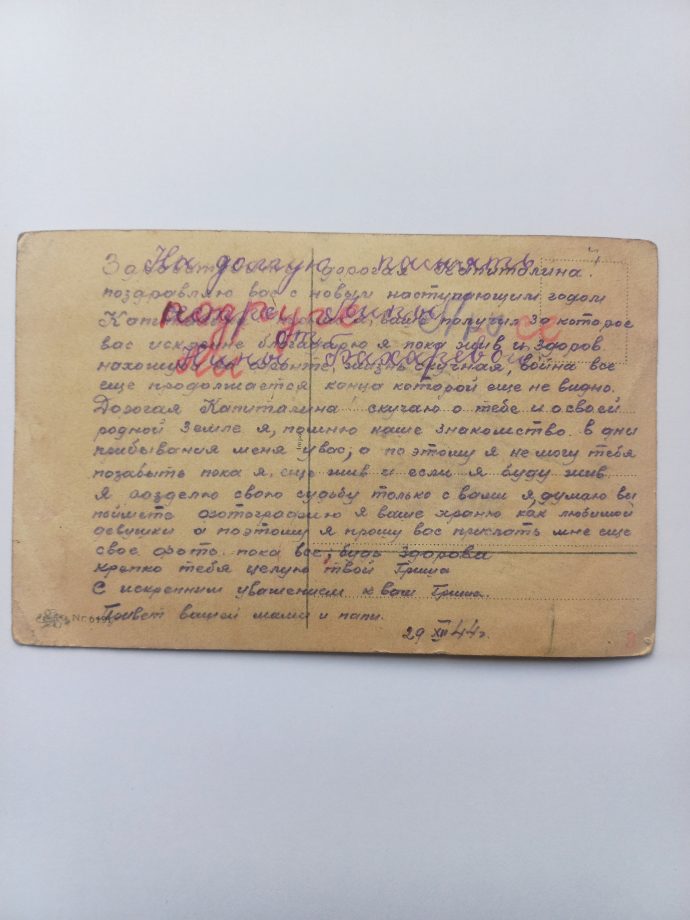 На долгую память
подруге
от
Нины
дорогая Капиталина!
поздравляю вас с новым наступающим годом
получил за которое
вас искренне благодарю я пока жив и здоров
жизнь скучная, война все
еще продолжается конца которой еще не видно.
Дорогая Капиталина! скучаю о тебе и о своей
родной земле я, помню наше знакомство в дни
прибывания меня у вас, а поэтому я не могу тебя
позабыть пока я еще жив и если я буду жив
я разделю свою судьбу только с вами я думаю вы
поймете фотографию я ваше храню как любимой
девушки а поэтому я прошу вас прислать мне еще
свое фото. пока все, будь здорова
крепко тебя целую твой Гриша
С искренним уважением к вам Гриша.
Привет вашей мами и папи.
29 XII 44 г.